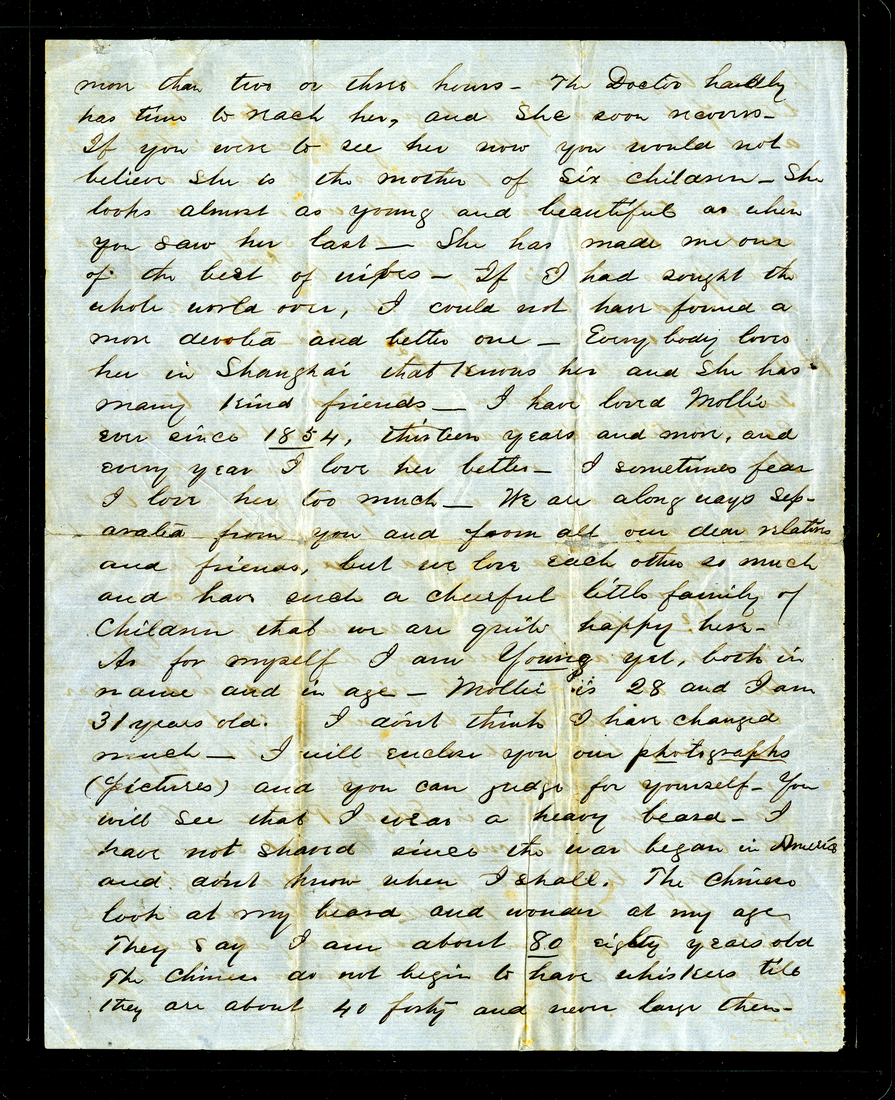 more than two or three hours - The Doctor hardly
has time to reach her, and she soon recovers -
If you were to see her now you would not
believe she is the mother of six children - She
looks almost as young and beautiful as when
you saw her last - She has made me one
of the best of wifes - If I had sought the
whole world over, I could not have found a
more devoted and better one - Every body loves
her in Shanghai that knows her and she has
many kind friends - I have loved Mollie
ever since 1854, thirteen years and more, and
every year I love her better - I sometimes fear
I love her too much - We are a long ways sep-
arated from you and from all our dear relatives
and friends, but we love each other so much
and have such a cheerful little family of
Children that we are quite happy here -
As for myself I am Young yet, both in
name and in age - Mollie is 28 and I am
31 years old. I don't think I have changed
much - I will enclose you our photographs
(pictures) and you can judge for yourself - You
will see that I wear a heavy beard - I
have not shaved since the war began in America
and don't know when I shall. The Chinese
look at my beard and wonder at my age
They say I am about 80 eighty years old
The Chinese do not begin to have whiskers till
they are about 40 forty and never large then -